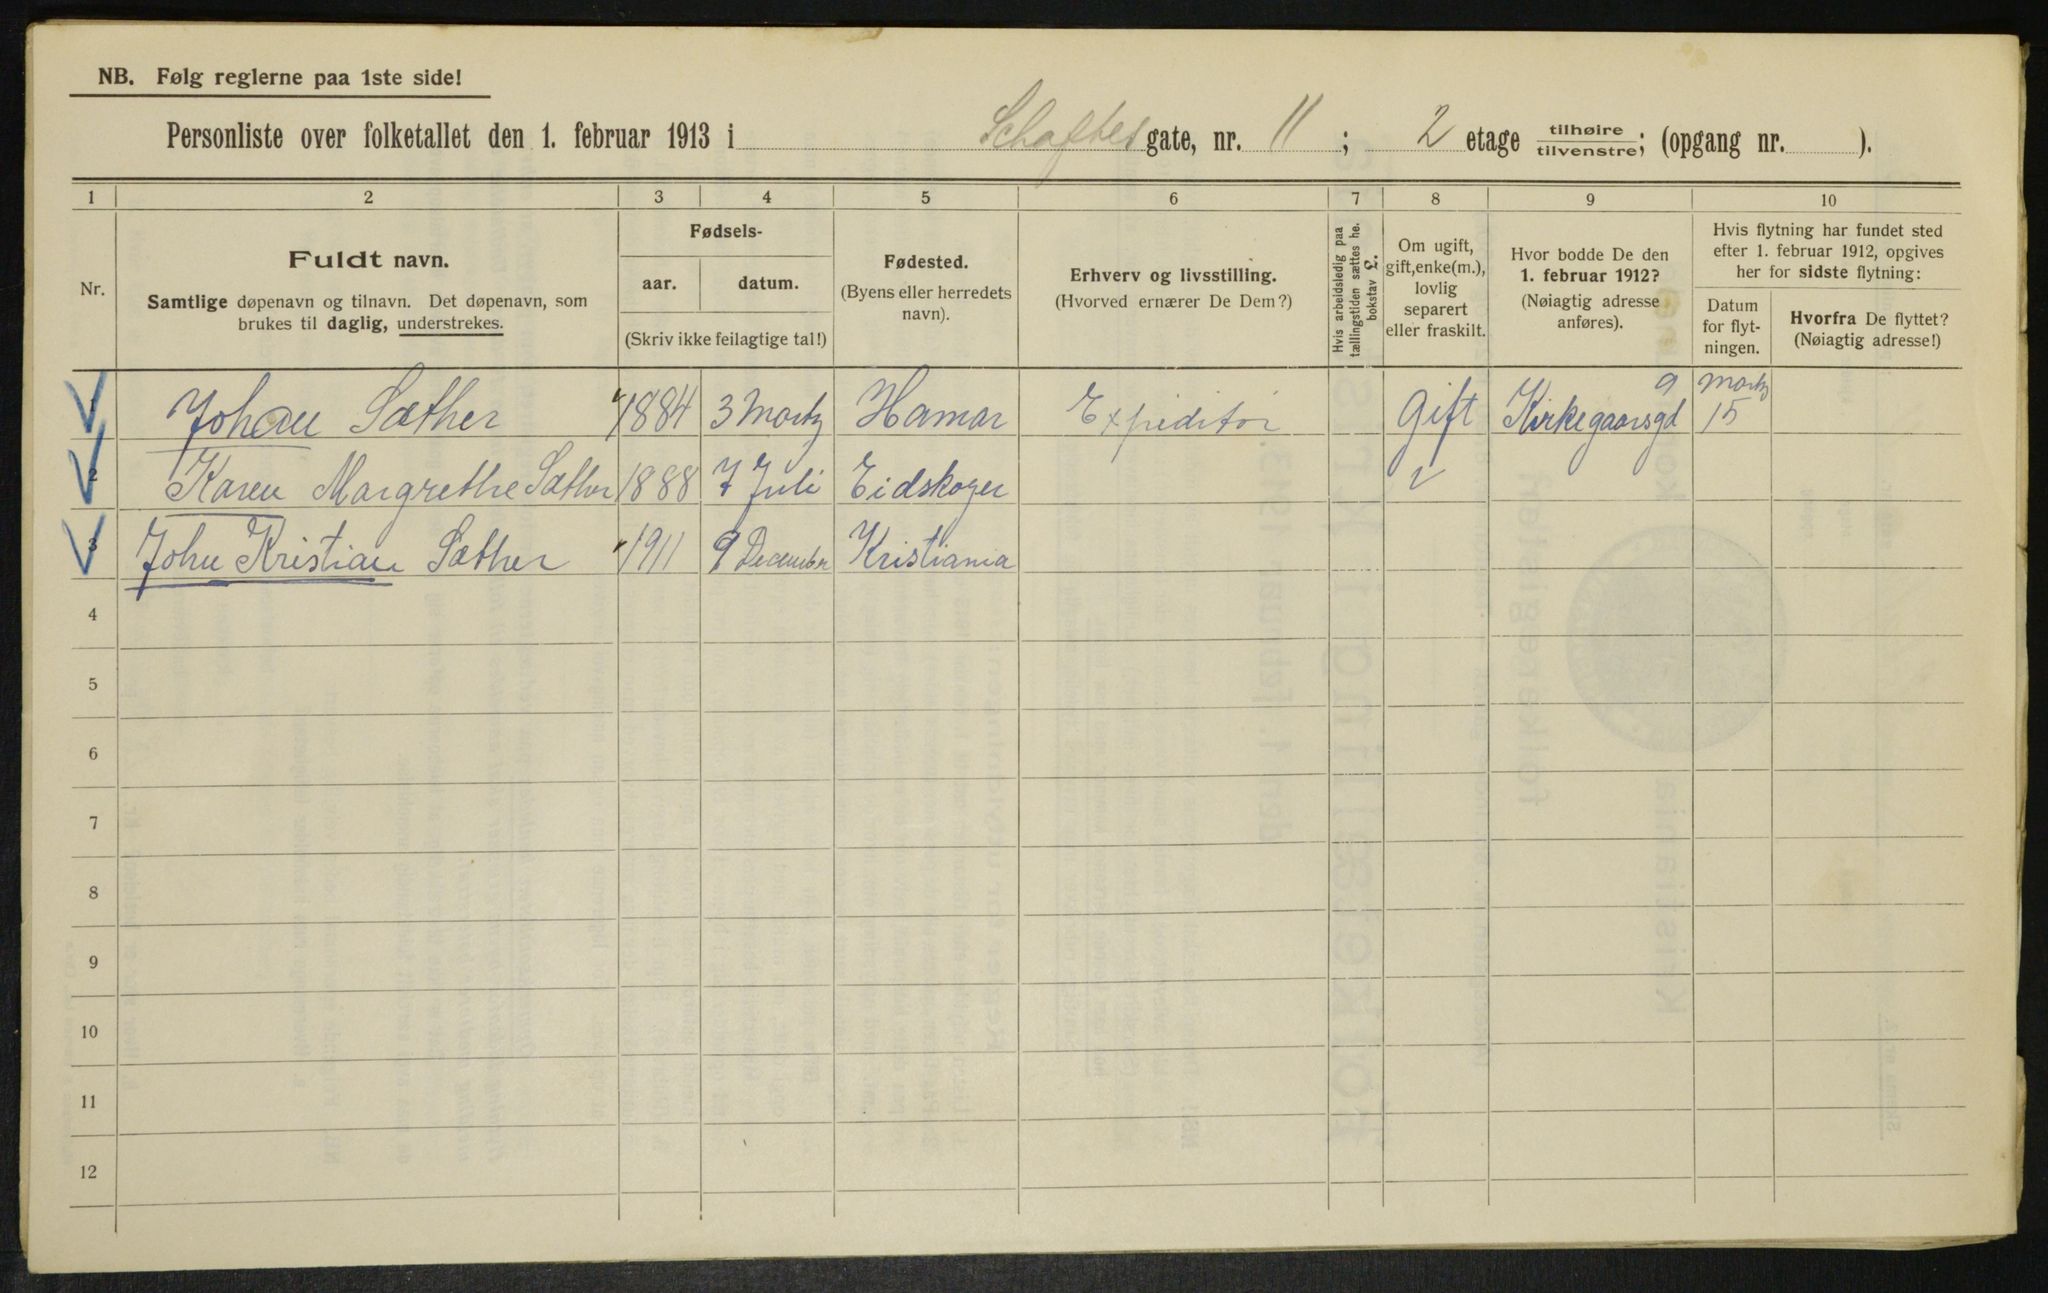 NB. Følg reglerne paa 1ste side!
Personliste over folketallet den 1. februar 1913 i Schaftes gate, nr. 11 ; 2 etage tilhøire tilvenstre; (opgang nr. ).
1 2 3 4 5 6 7 8 9 10
Nr.
Fuldt navn.
Samtlige døpenavn og tilnavn. Det døpenavn, som
brukes til daglig, understrekes.
Fødsels-
aar. datum.
(Skriv ikke feilagtige tal!)
Fødested.
(Byens eller herredets
navn).
Erhverv og livsstilling.
(Hvorved ernærer De Dem?)
Hvis arbeidsledig paa
tællingstiden sættes he.
bokstav L.
Om ugift,
gift,enke(m.),
lovlig
separert
eller fraskilt.
Hvor bodde De den
1. februar 1912?
(Nøiagtig adresse
anføres).
Hvis flytning har fundet sted
efter 1. februar 1912, opgives
her for sidste flytning:
Datum
for flyt-
ningen.
Hvorfra De flyttet?
(Nøiagtig adresse!)
1 Johan Sæther 1884 3 Martz Hamar Expeditør Gift Kirkegaarsgd 9 Martz 15
2 Karen Margrethe Sæther 1888 7 Juli Eidskogen
3 John Kristian Sæther 1911 9 December Kristiania
4
5
6
7
8
9
10
11
12